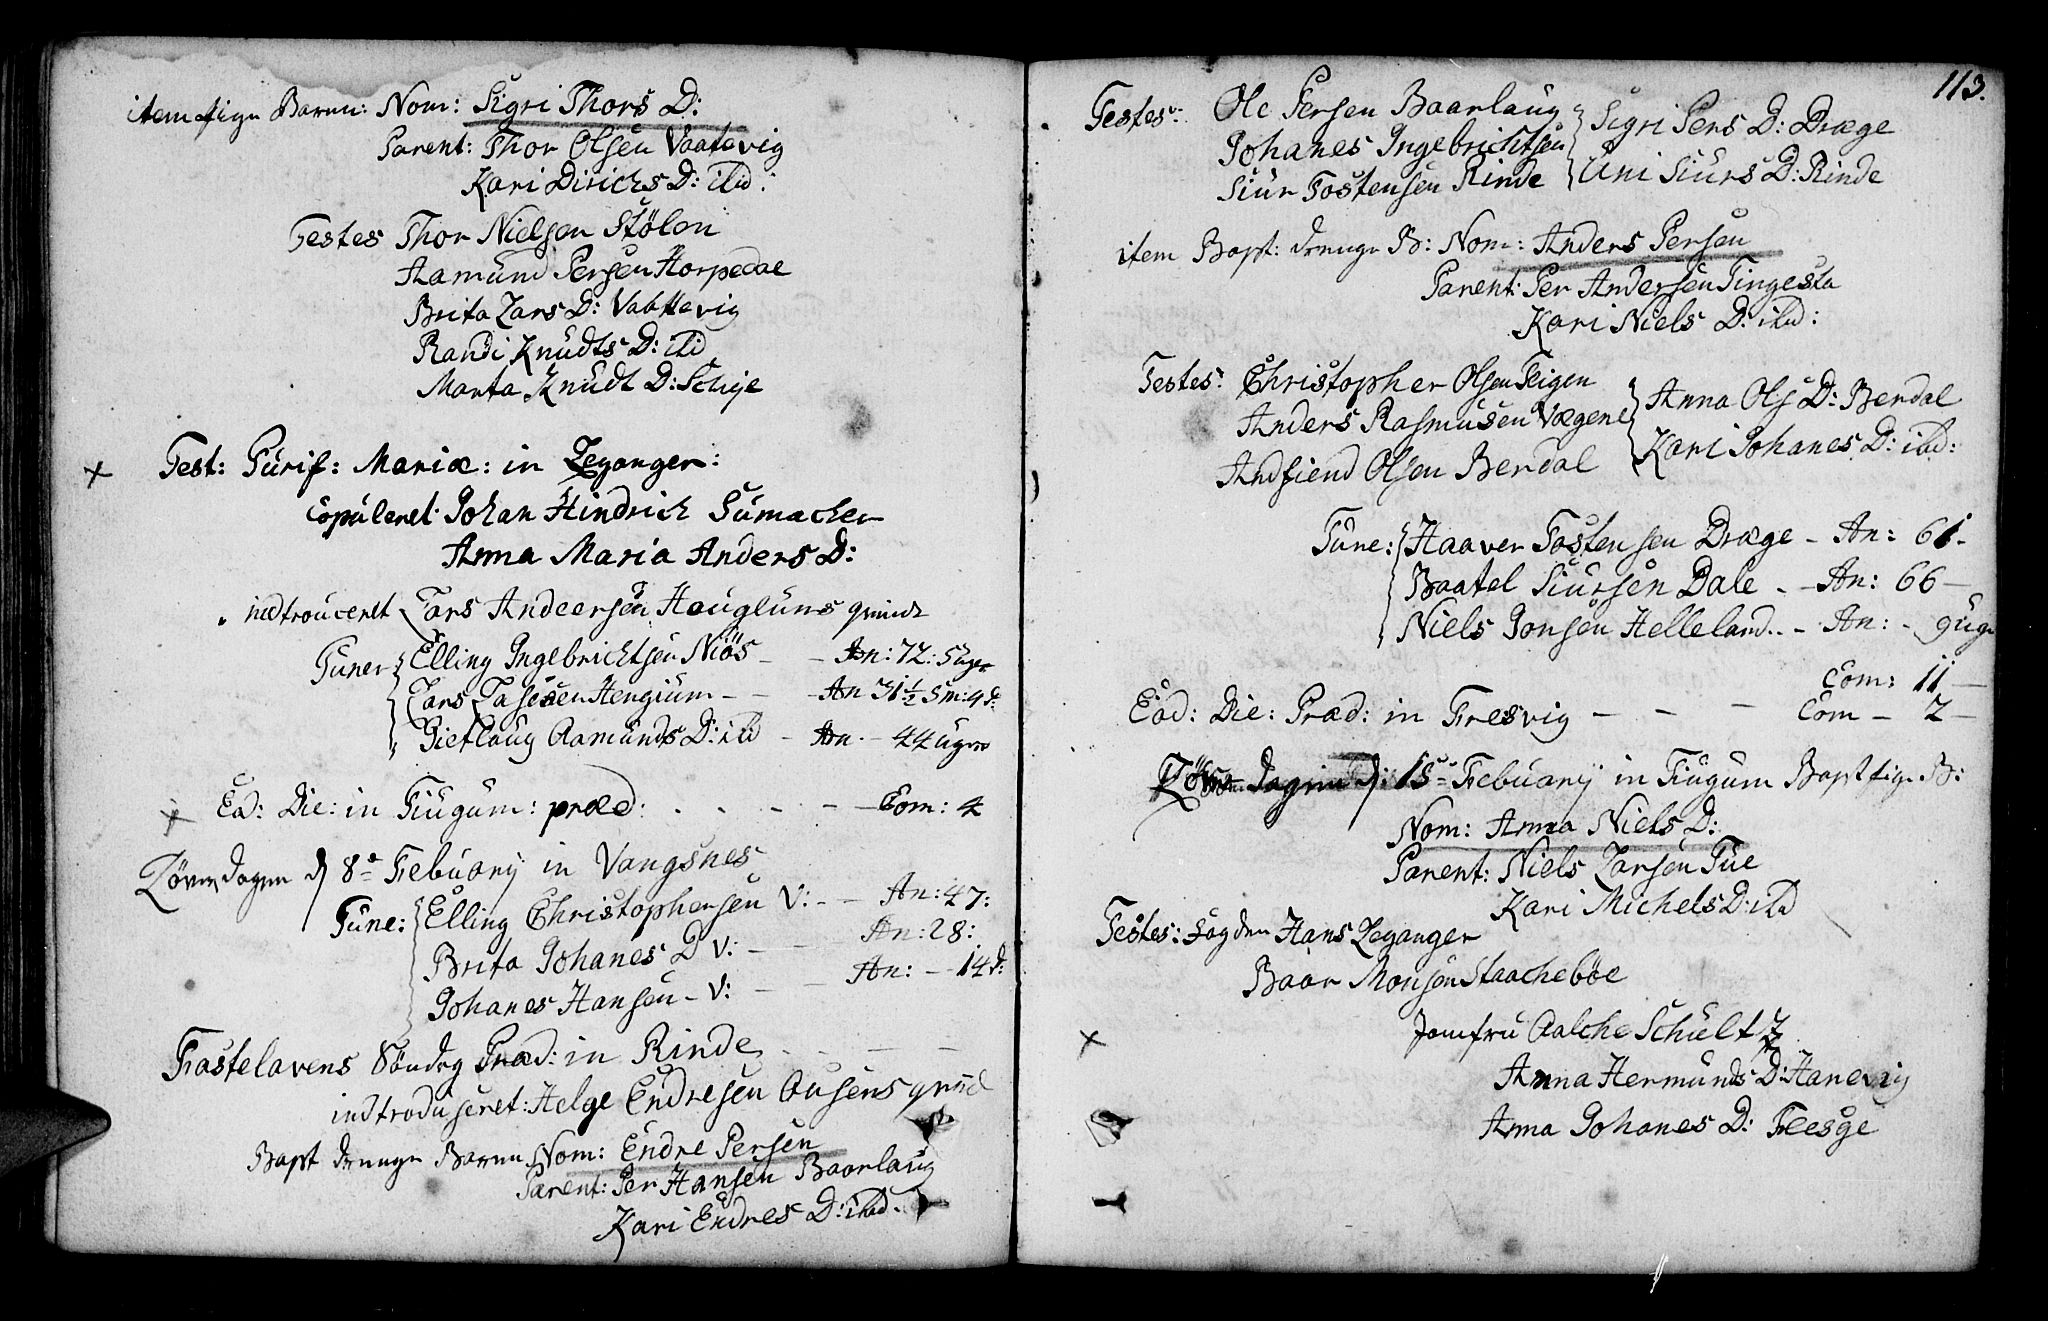 item Pige Baren: Nom: Sigri Thors D:
Parent: Thor Olsen Vaatevig
Kari Dirichs D: ibid:
Testes Thor Nielsen Stölen
Aamund Persen Horpedal
Brita Lars D: Vaattevig
Randi Knudts D: ibid
Marta Knudt D: Schije
Fest: Purif: Mariæ: in Leganger:
Copuleret Johan Hindrich Sumacher
Anna Maria Anders D:
indtrouceret Lars Andeersen Hauglums quinde
Funer Elling Ingebrichtsen Niös - - An: 72: 5 uger
Lars Lasesen Hengium - - An 31½ 5 m: 4 d:
Gietlaug Aamunds D: ibid - An - 44 uger
Ead: Die: in Fiugum: præd: - - Com: 4
Löverdagen d 8de Febuary in Vangsnes
Fune: Elling Christophersen V: - - An: 47:
Brita Johanes D V: - An: 28:
Johanes Hansen - V: - - An: - 14 d:
Fastelavens Söndag Præd: in Rinde - -
indtroduseret: Helge Endresen Ousens quind
Bapt drenge Baren Nom: Endre Persen
Parent: Per Hansen Baarlaug
Kari Endres D: ibid.
113.
Testes: Ole Persen Baarlaug
Johanes Ingebrichtsen
Siur Tostensen Rinde
Sigri Pers D: Dræge
Uni Siurs D: Rinde
item Bapt: drenge B: Nom: Anders Persen
Parent: Per Andersen Tingesta
Kari Niels D: ibid:
Testes: Christopher Olsen Feigen
Anders Rasmusen Vægene
Andfiend Olsen Berdal
Anna Ols D: Berdal
Kari Johanes D: ibd:
Fune: Haaver Tosten sen Dræge - An: 61 -
Baatel Siursen Dale - - An: 66 -
Niels Jonsen Helleland - - An: - 9 ug
Com: 11 -
Ead: Die: Præd: in Fresvig - - - Com - 2 -
Löverdagen d: 15de Febuary in Fiugum Bapt Pige B:
Nom: Anna Niels D:
Parent: Niels Larsen Tue
Kari Michels D: ibd
Testes: Fogden Hans Leganger
Baar Monsen Staachebøe
Jomfru Aalche Schult
Anna Hermunds D: Hanevig
Anna Johanes D: Flesge